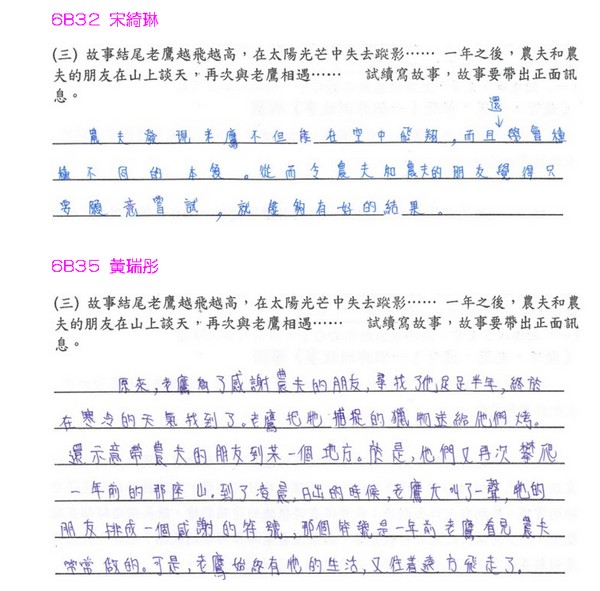 6B32 宋綺琳
(三) 故事結尾老鷹越飛越高，在太陽光芒中失去蹤影…… 一年之後，農夫和農
夫的朋友在山上談天，再次與老鷹相遇…… 試續寫故事，故事要帶出正面訊
息。
還
農夫發現老鷹不但能在空中飛翔，而且學會種
種不同的本領。從而令農夫和農夫的朋友覺得只
要願意嘗試，就能夠有好的結果。
6B35 黃瑞彤
(三) 故事結尾老鷹越飛越高，在太陽光芒中失去蹤影…… 一年之後，農夫和農
夫的朋友在山上談天，再次與老鷹相遇…… 試續寫故事，故事要帶出正面訊
息。
原來，老鷹為了感謝農夫的朋友，尋找了他足足半年，終於
在寒冷的天氣找到了。老鷹把牠捕捉的獵物送給他們烤。
還示意帶農夫的朋友到某一個地方。於是，他們又再次攀爬
一年前的那座山。到了凌晨，日出的時候，老鷹大叫了一聲，牠的
朋友排成一個感謝的符號，那個符號是一年前老鷹看見農夫
常常做的。可是，老鷹始終有牠的生活，又往着遠方飛走了。